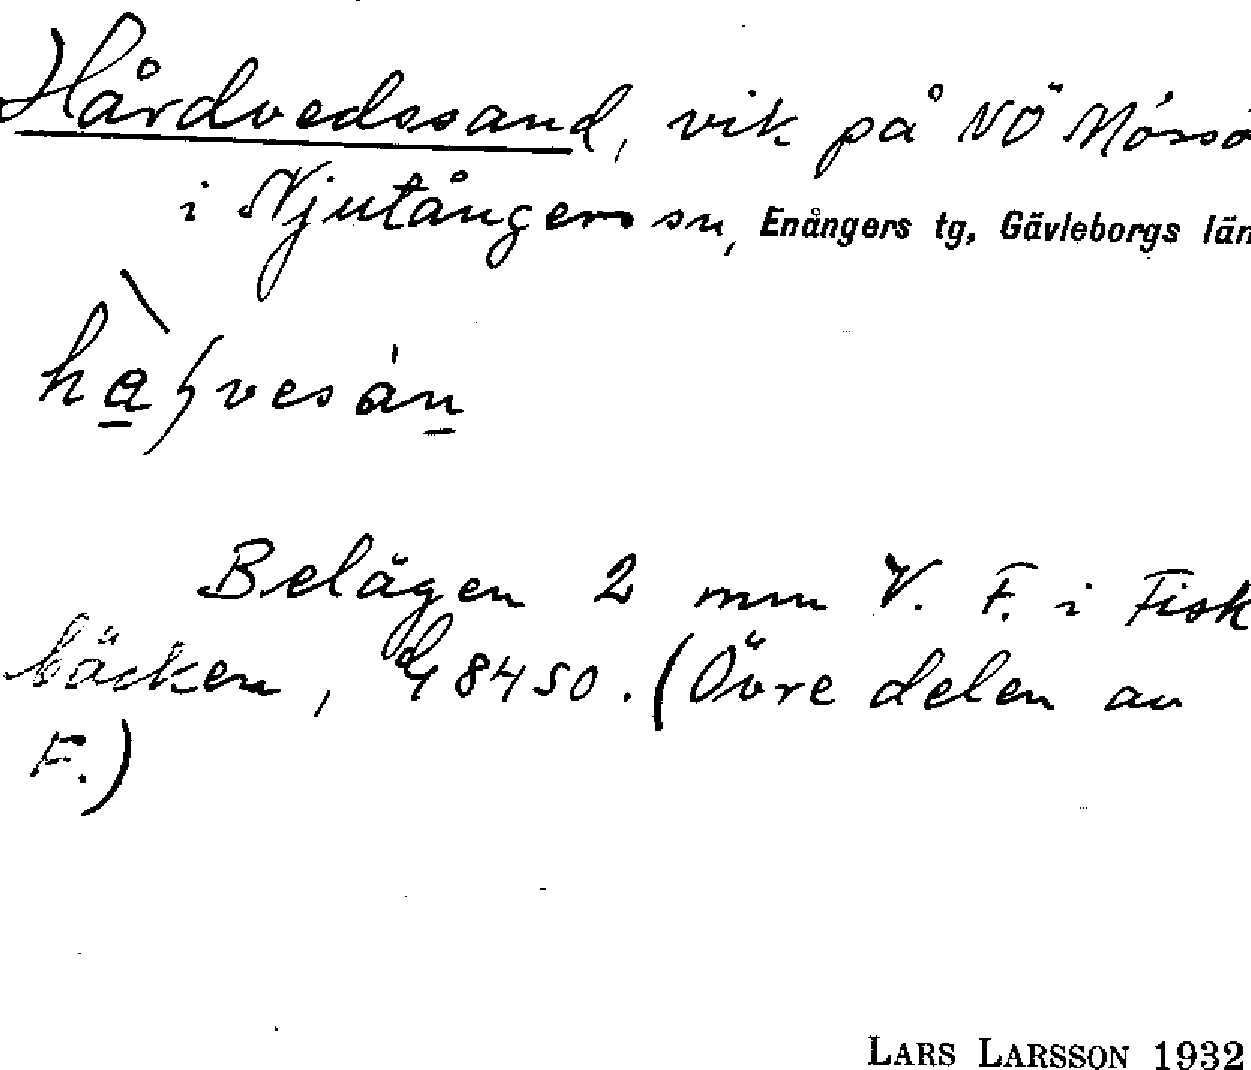 Hårdvedssand, vik på NÖ Mössö
i Njutångers sn, Enångers tg, Gävleborgs län
Belägen 2 mm V. F. i Fisk
bäcken, 48450. (Övre delen av
F.)
LARS LARSSON 1932